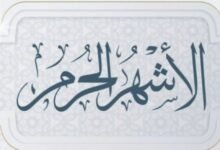 الأَشْهُرُ الحُرُم